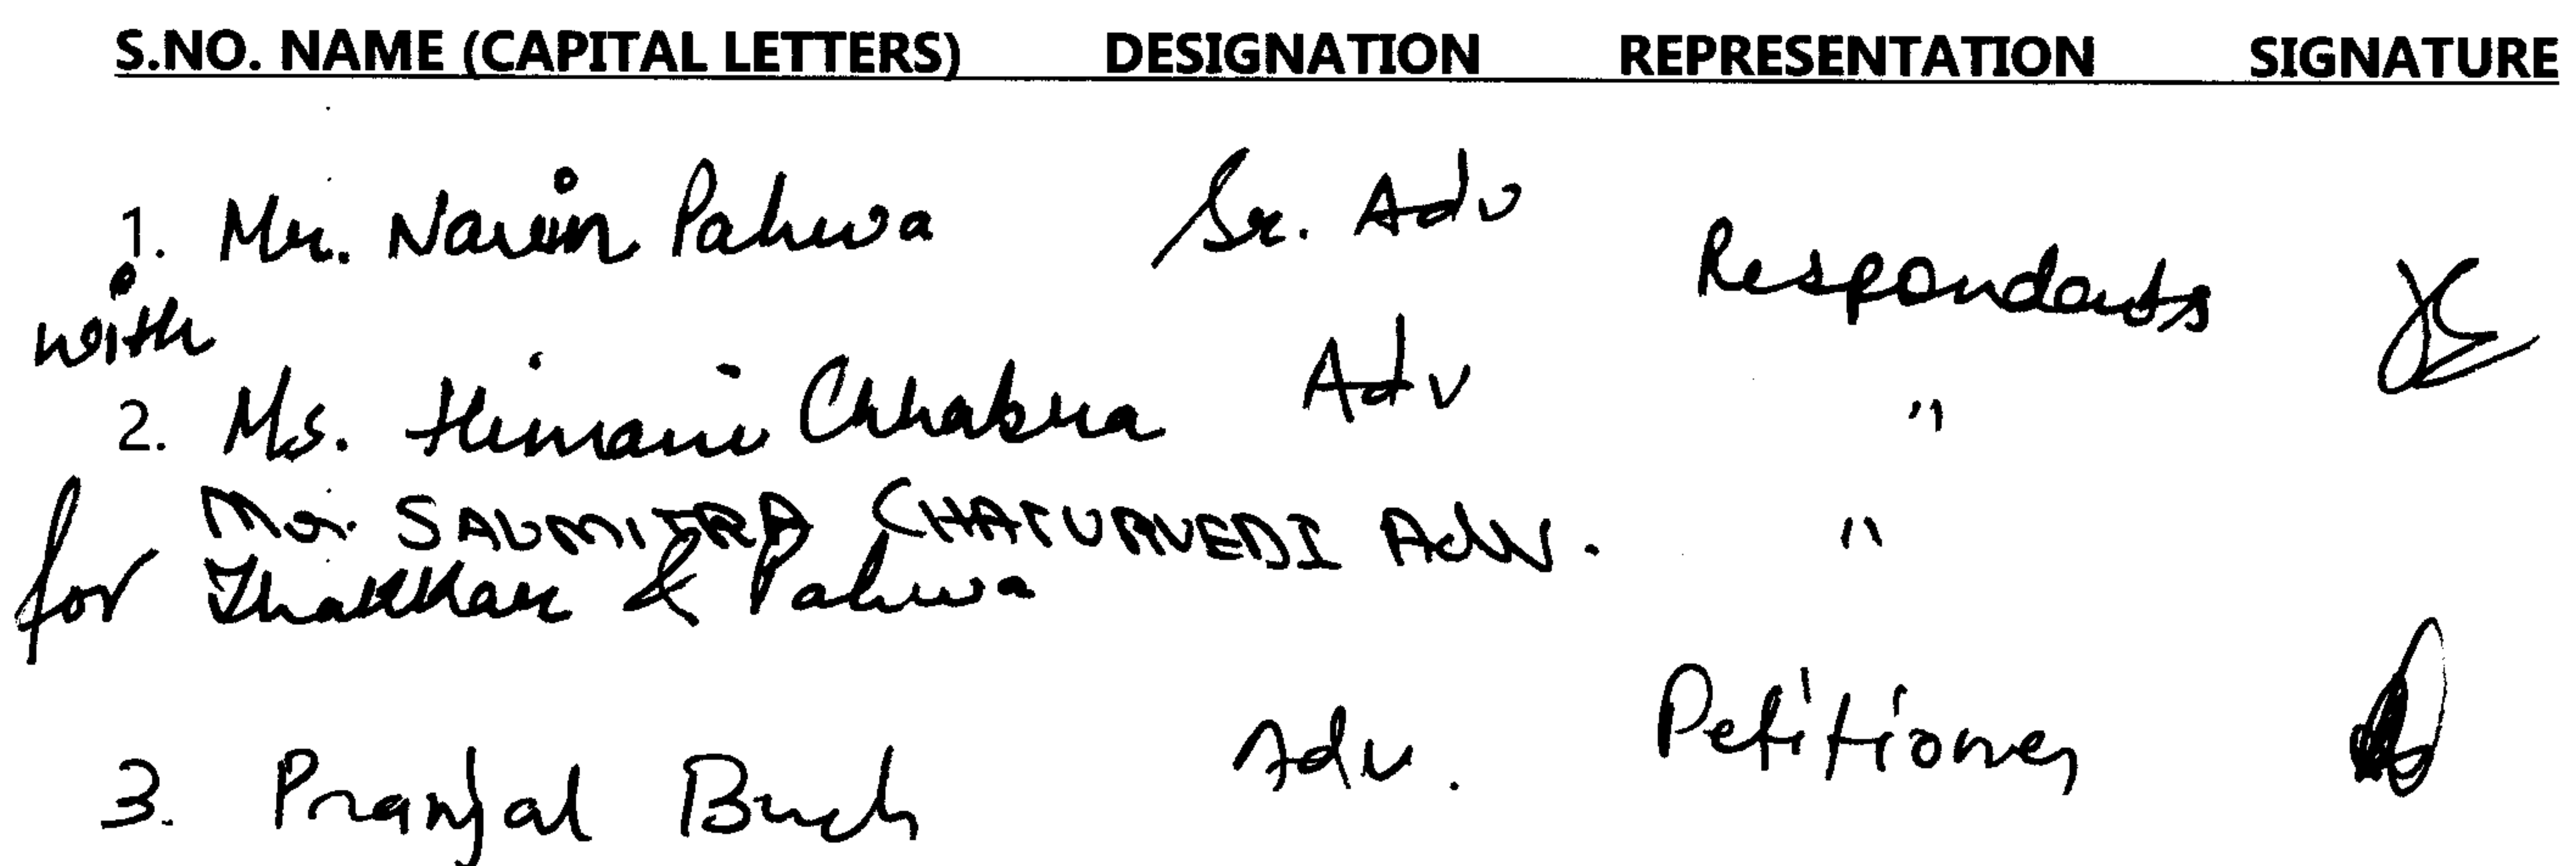 S.NO. NAME (CAPITAL LETTERS) DESIGNATION REPRESENTATION SIGNATURE
1. Mr. Navin Pahwa Sr. Adv Respondents
with
2. Ms. Himani Chhabra Adv "
Mr. SAUMITRA CHATURVEDI Adv. "
for Thakkar & Pahwa
3. Pranjal Buch Adv. Petitioner